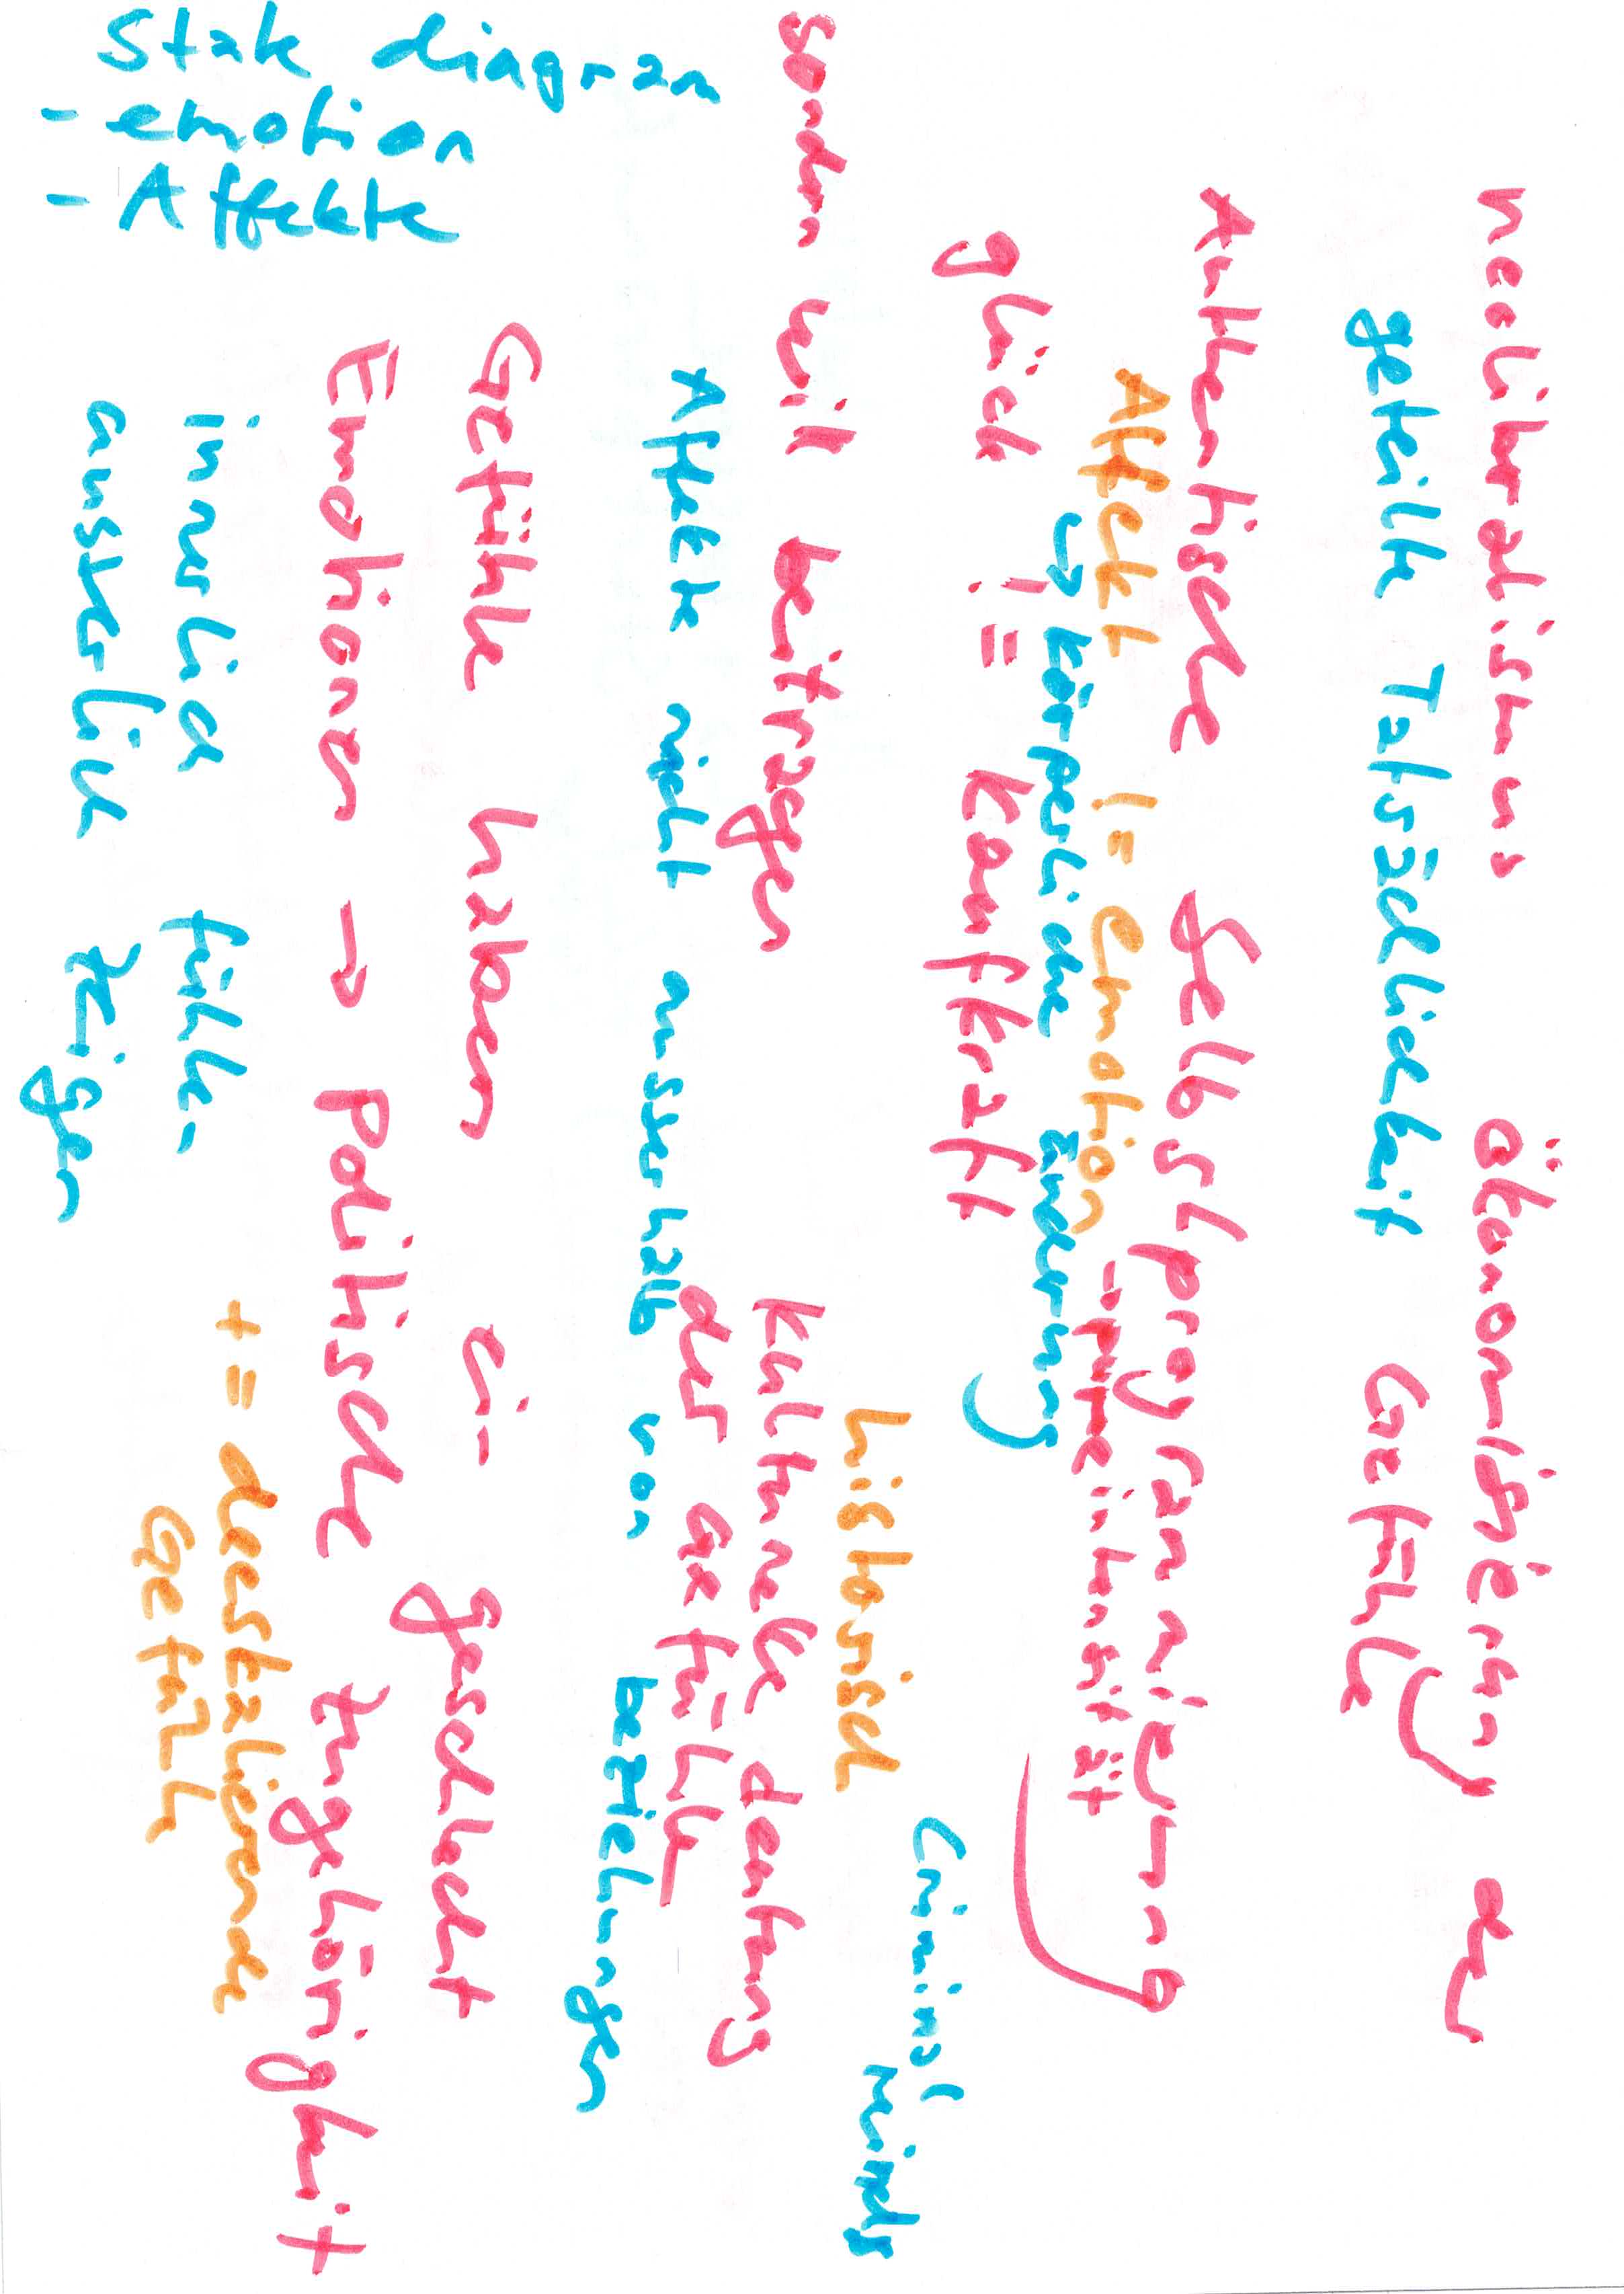 neoliberalismus ökonomisierung der
geteilte Tatsächlichkeit Gefühle
Authentische Selbstprogrammierung
Affekt != emotion → pure intensität
↳ körperliche änderung
glück != Kaufkraft
Criminal
minds
historisch
sondern will beitragen
kulturelle deutung
der Gefühle
Affekte nicht ausserhalb von beziehungen
Gefühle haben ein geschlecht
Emotionen → Politische Zugehörigkeit
+= deeskalierende
Gefühle
innerlich fühlen
ausserlich zeigen
State diagram
- emotion
- Affekte